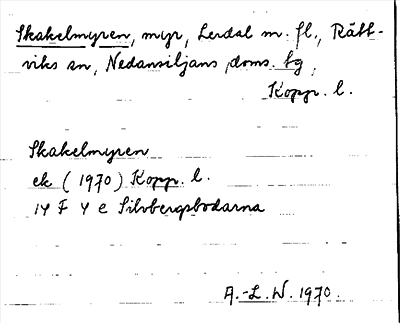 Skakelmyren, myr, Lerdal m. fl., Rätt-
viks sn, Nedansiljans doms. tg,
Kopp. l.
Skakelmyren
ek (1970) Kopp. l.
14 F 4 e Silvbergsbodarna
A.-L. W. 1970.